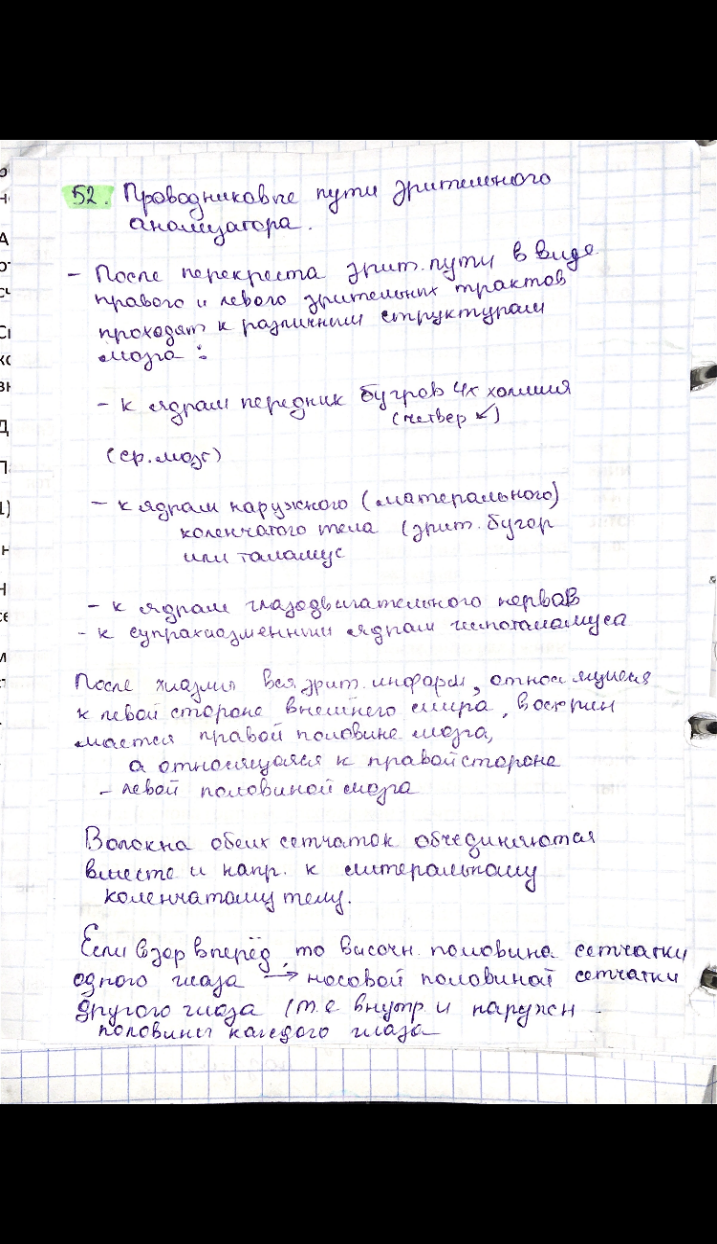 52. Проводниковые пути зрительного
анализатора.
- После перекреста зрит. пути в виде
правого и левого зрительных трактов
проходят к различным структурам
мозга:
- к ядрам передних бугров 4х холмия
(четвер ↙)
(ср. мозг)
- к ядрам наружного (латерального)
коленчатого тела (зрит. бугор
или таламус
- к ядрам глазодвигательного нервов
- к супрахиазменным ядрам гипоталамуса
После хиазмы вся зрит. информ, относящиеся
к левой стороне внешнего мира, восприн
мается правой половине мозга,
а относящаяся к правой стороне
- левой половиной мозга
Волокна обеих сетчаток объединяются
вместе и напр. к литеральному
коленчатому телу.
Если взор вперёд, то височн. половина сетчатки
одного глаза → носовой половиной сетчатки
другого глаза (т.е внутр. и наружн
половины каждого глаза